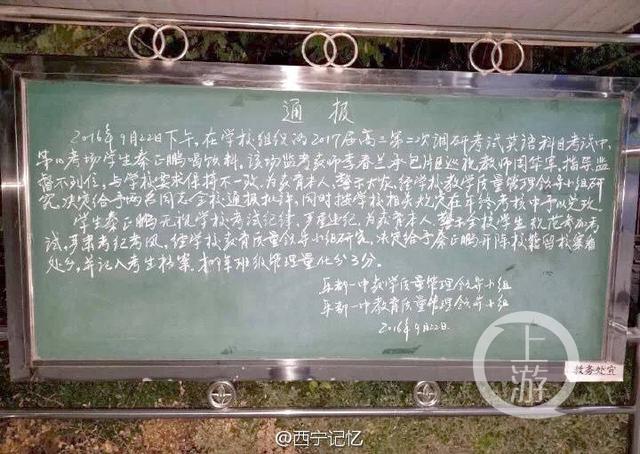 通报
2016年9月22日下午,在学校组织的2017届高三第二次调研考试英语科目考试中,
第10考场学生秦正鹏喝饮料,该场监考教师李春兰和包片区巡视教师周华军,指导监
督不到位,与学校要求保持不一致,为教育本人,警示大家,经学校教学质量管理领导小组研
究,决定给予两名同志全校通报批评,同时按学校相关规定在年终考核中予以定攻。
学生秦正鹏无视学校考试纪律,严重违纪,为教育本人,警示全校学生规范参加考
试,严肃考纪考风,经学校教育质量领导小组研究,决定给予秦正鹏开除校籍留校察看
处分,并记入考生档案,扣19年班级管理量化分3分。
乐都一中教学质量管理领导小组
乐都一中教育质量管理领导小组
2016年9月22日
教务处宣
上游
@西宁记忆